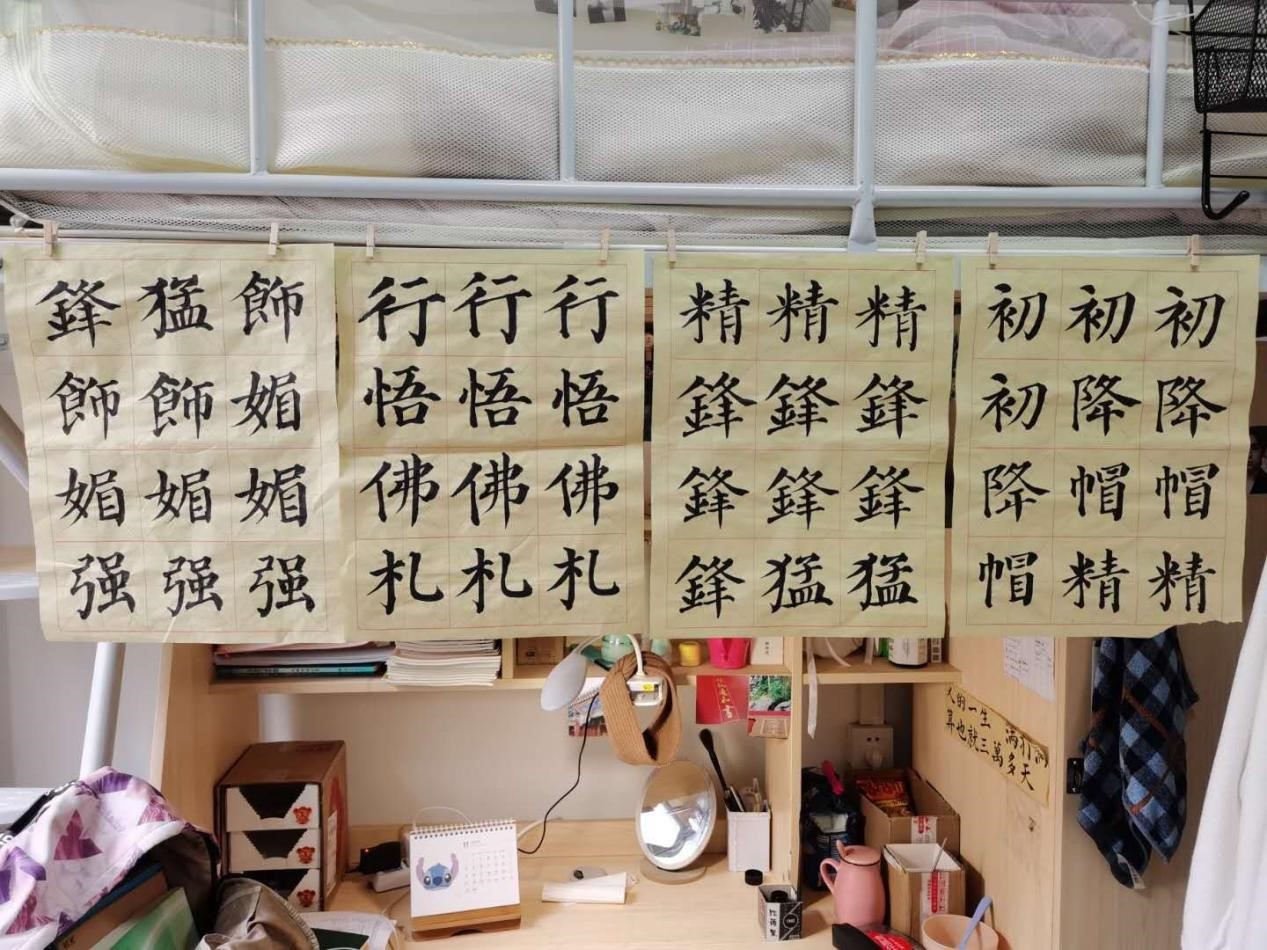 鋒猛飾
飾飾媚
媚媚媚
强强强
行行行
悟悟悟
佛佛佛
札札札
精精精
鋒鋒鋒
鋒鋒鋒
鋒猛猛
初初初
初降降
降帽帽
帽精精
人的一生 满打满
算也就三萬多天
11